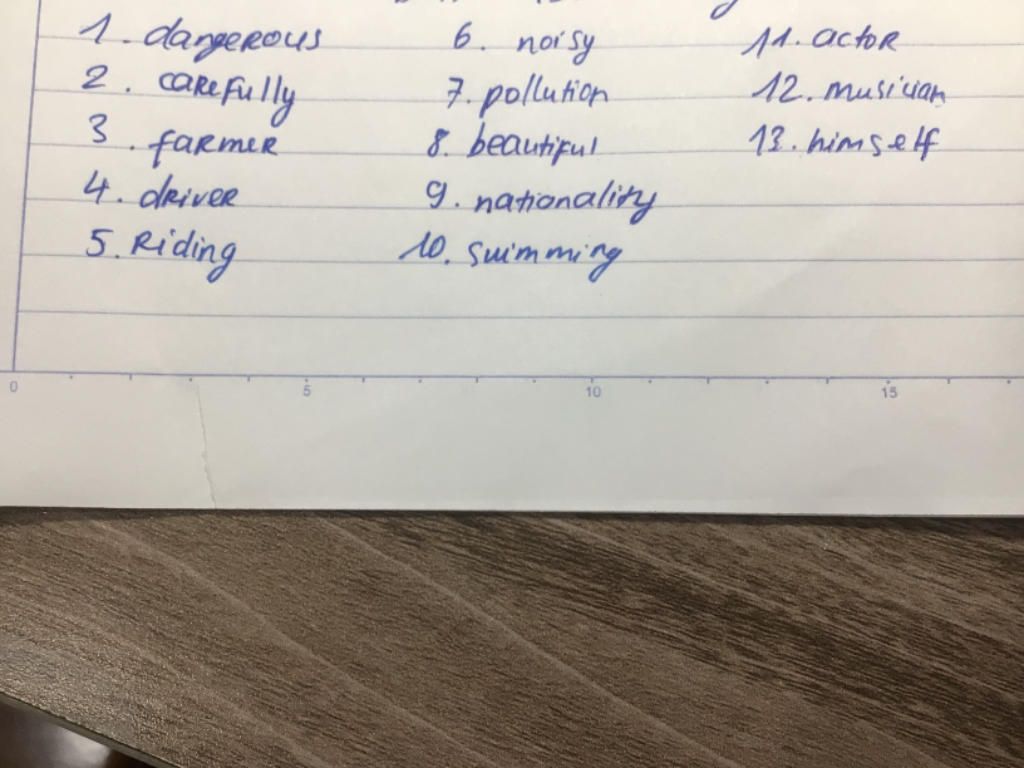 1. dangerous
2. carefully
3. farmer
4. driver
5. Riding
6. noisy
7. pollution
8. beautiful
9. nationality
10. swimming
11. actor
12. musician
13. himself
0 5 10 15